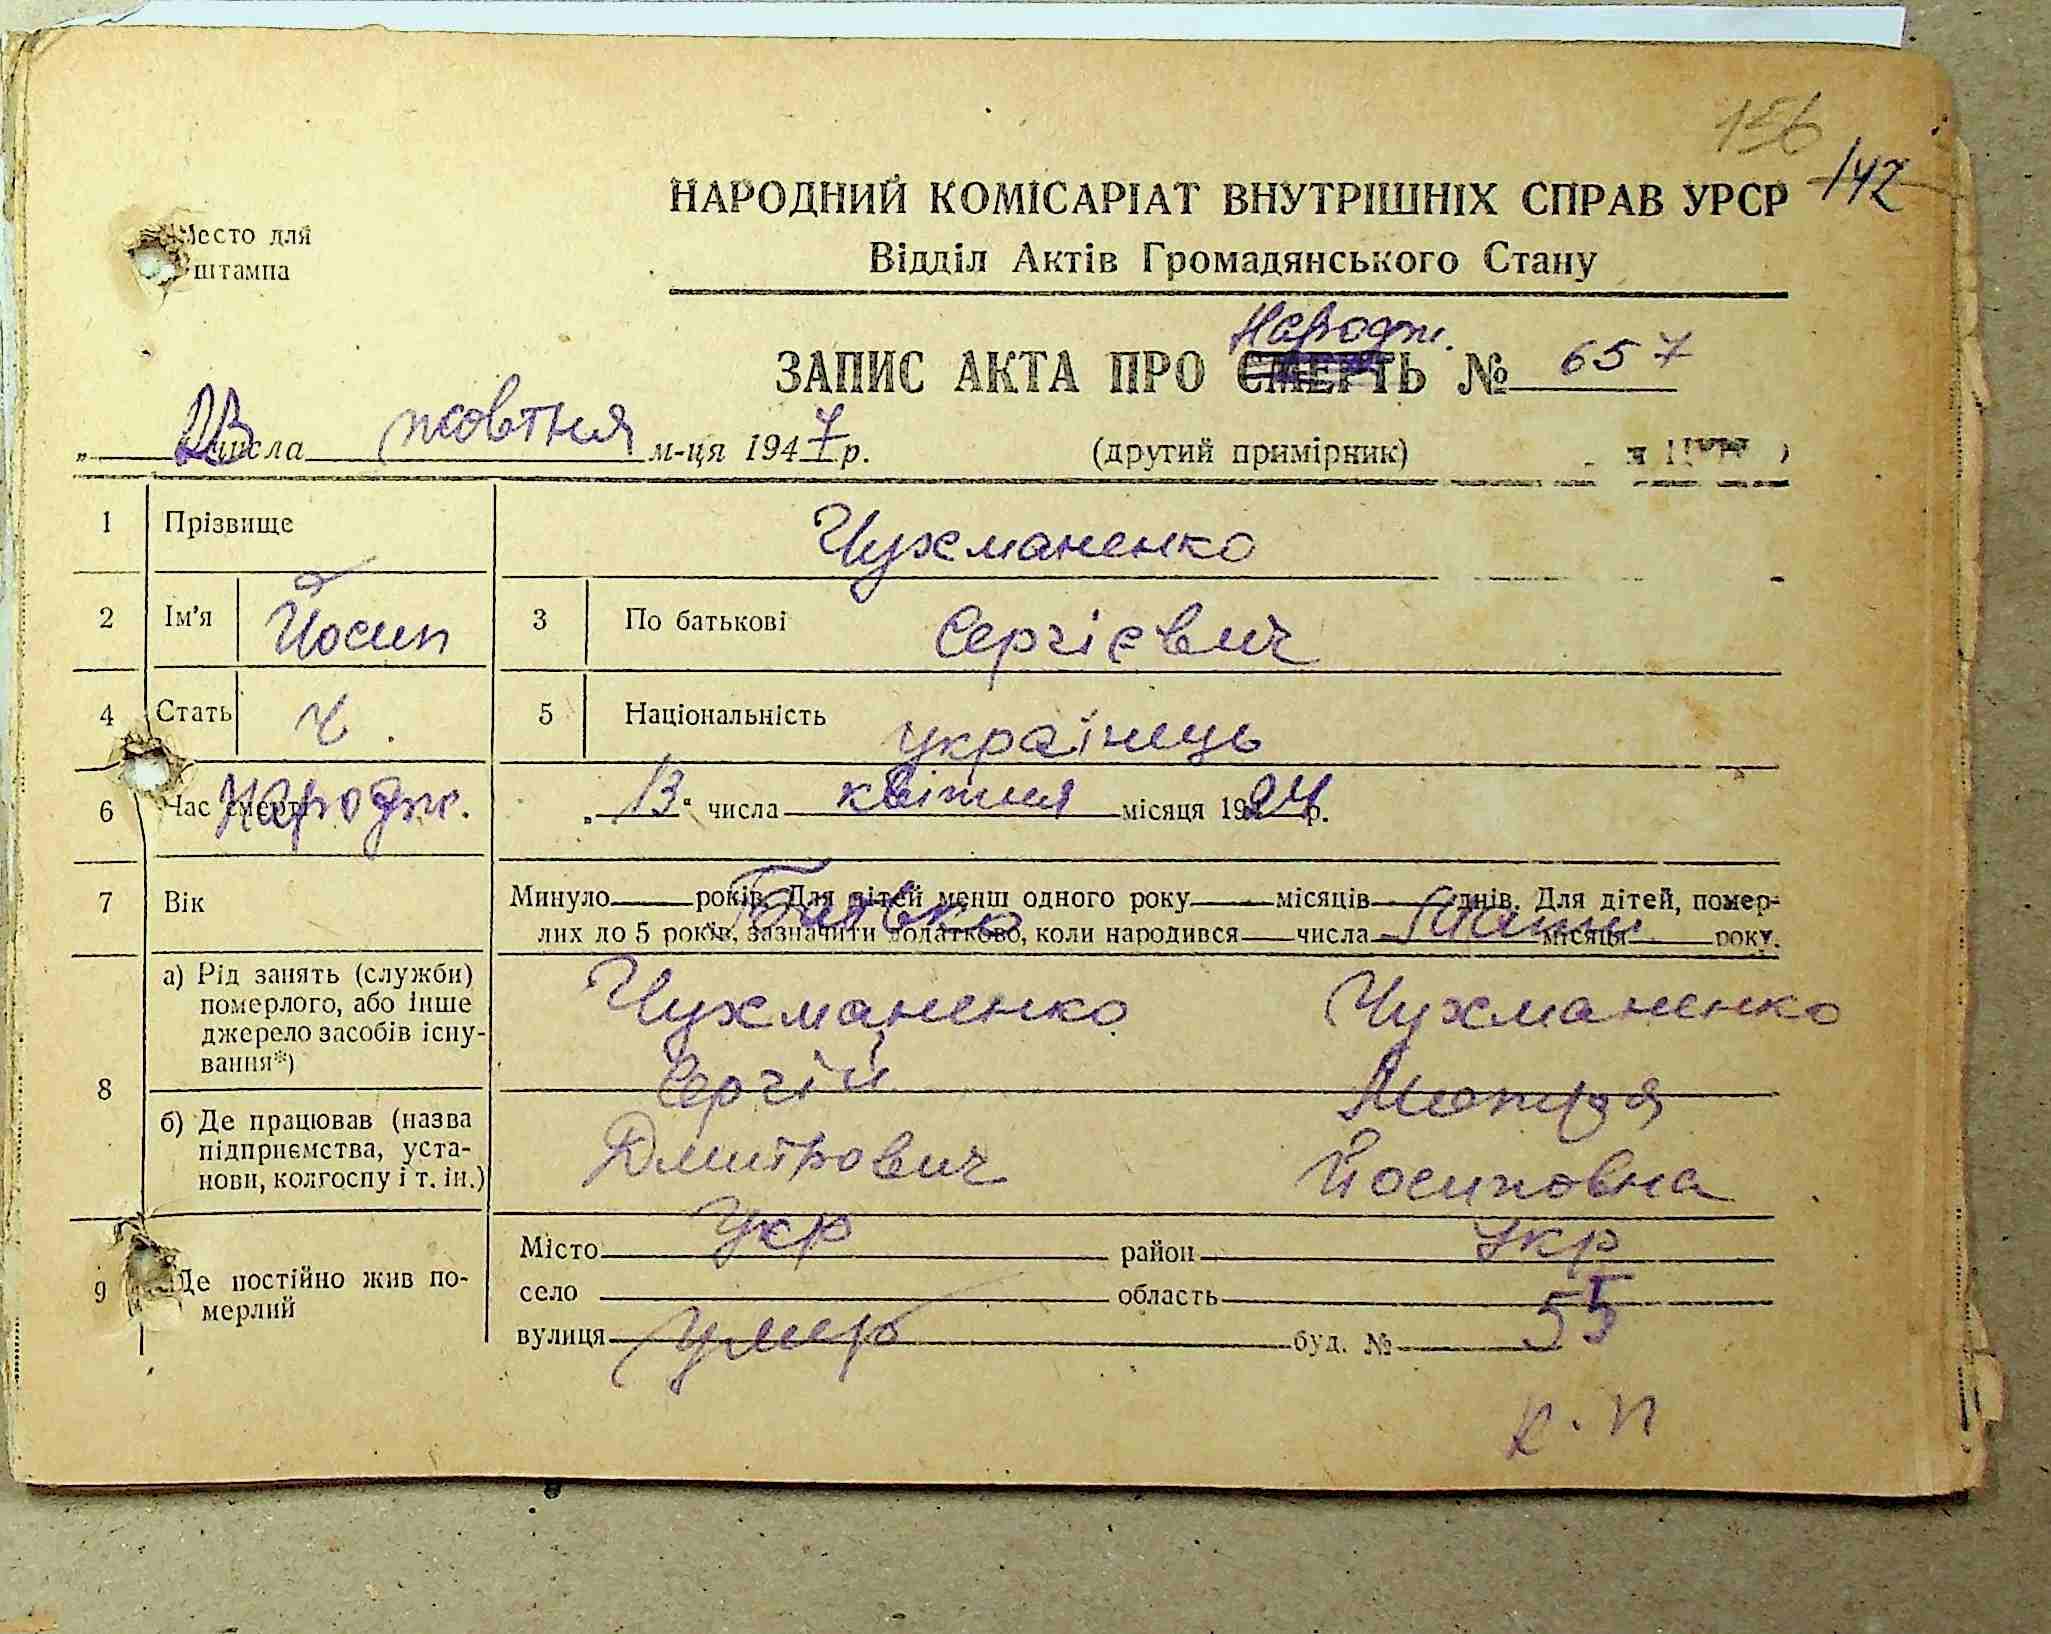 156
142
Место для
штампа
НАРОДНИЙ КОМІСАРІАТ ВНУТРІШНІХ СПРАВ УРСР
Відділ Актів Громадянського Стану
Народж.
ЗАПИС АКТА ПРО СМЕРТЬ № 657
„ 23 числа жовтня м-ця 1947 р. (другий примірник)
1 Прізвище Чухманенко
2 Ім'я Йосип 3 По батькові Сергієвич
4 Стать ч. 5 Національність українець
6 Час смерті Народж. „ 13 " числа квітня місяця 1924 р.
7 Вік Минуло років. Для дітей менш одного року місяців днів. Для дітей, помер-
лих до 5 років, зазначити додатково, коли народився числа місяця року.
Батько Мати
8 а) Рід занять (служби)
померлого, або інше
джерело засобів існу-
вання*)
Чухманенко Чухманенко
Сергій Мотря
б) Де працював (назва
підприємства, уста-
нови, колгоспу і т. ін.)
Дмитрович Йосиповна
Укр Укр
9 Де постійно жив по-
мерлий
Місто район
село область
вулиця умер буд. № 55
к. п